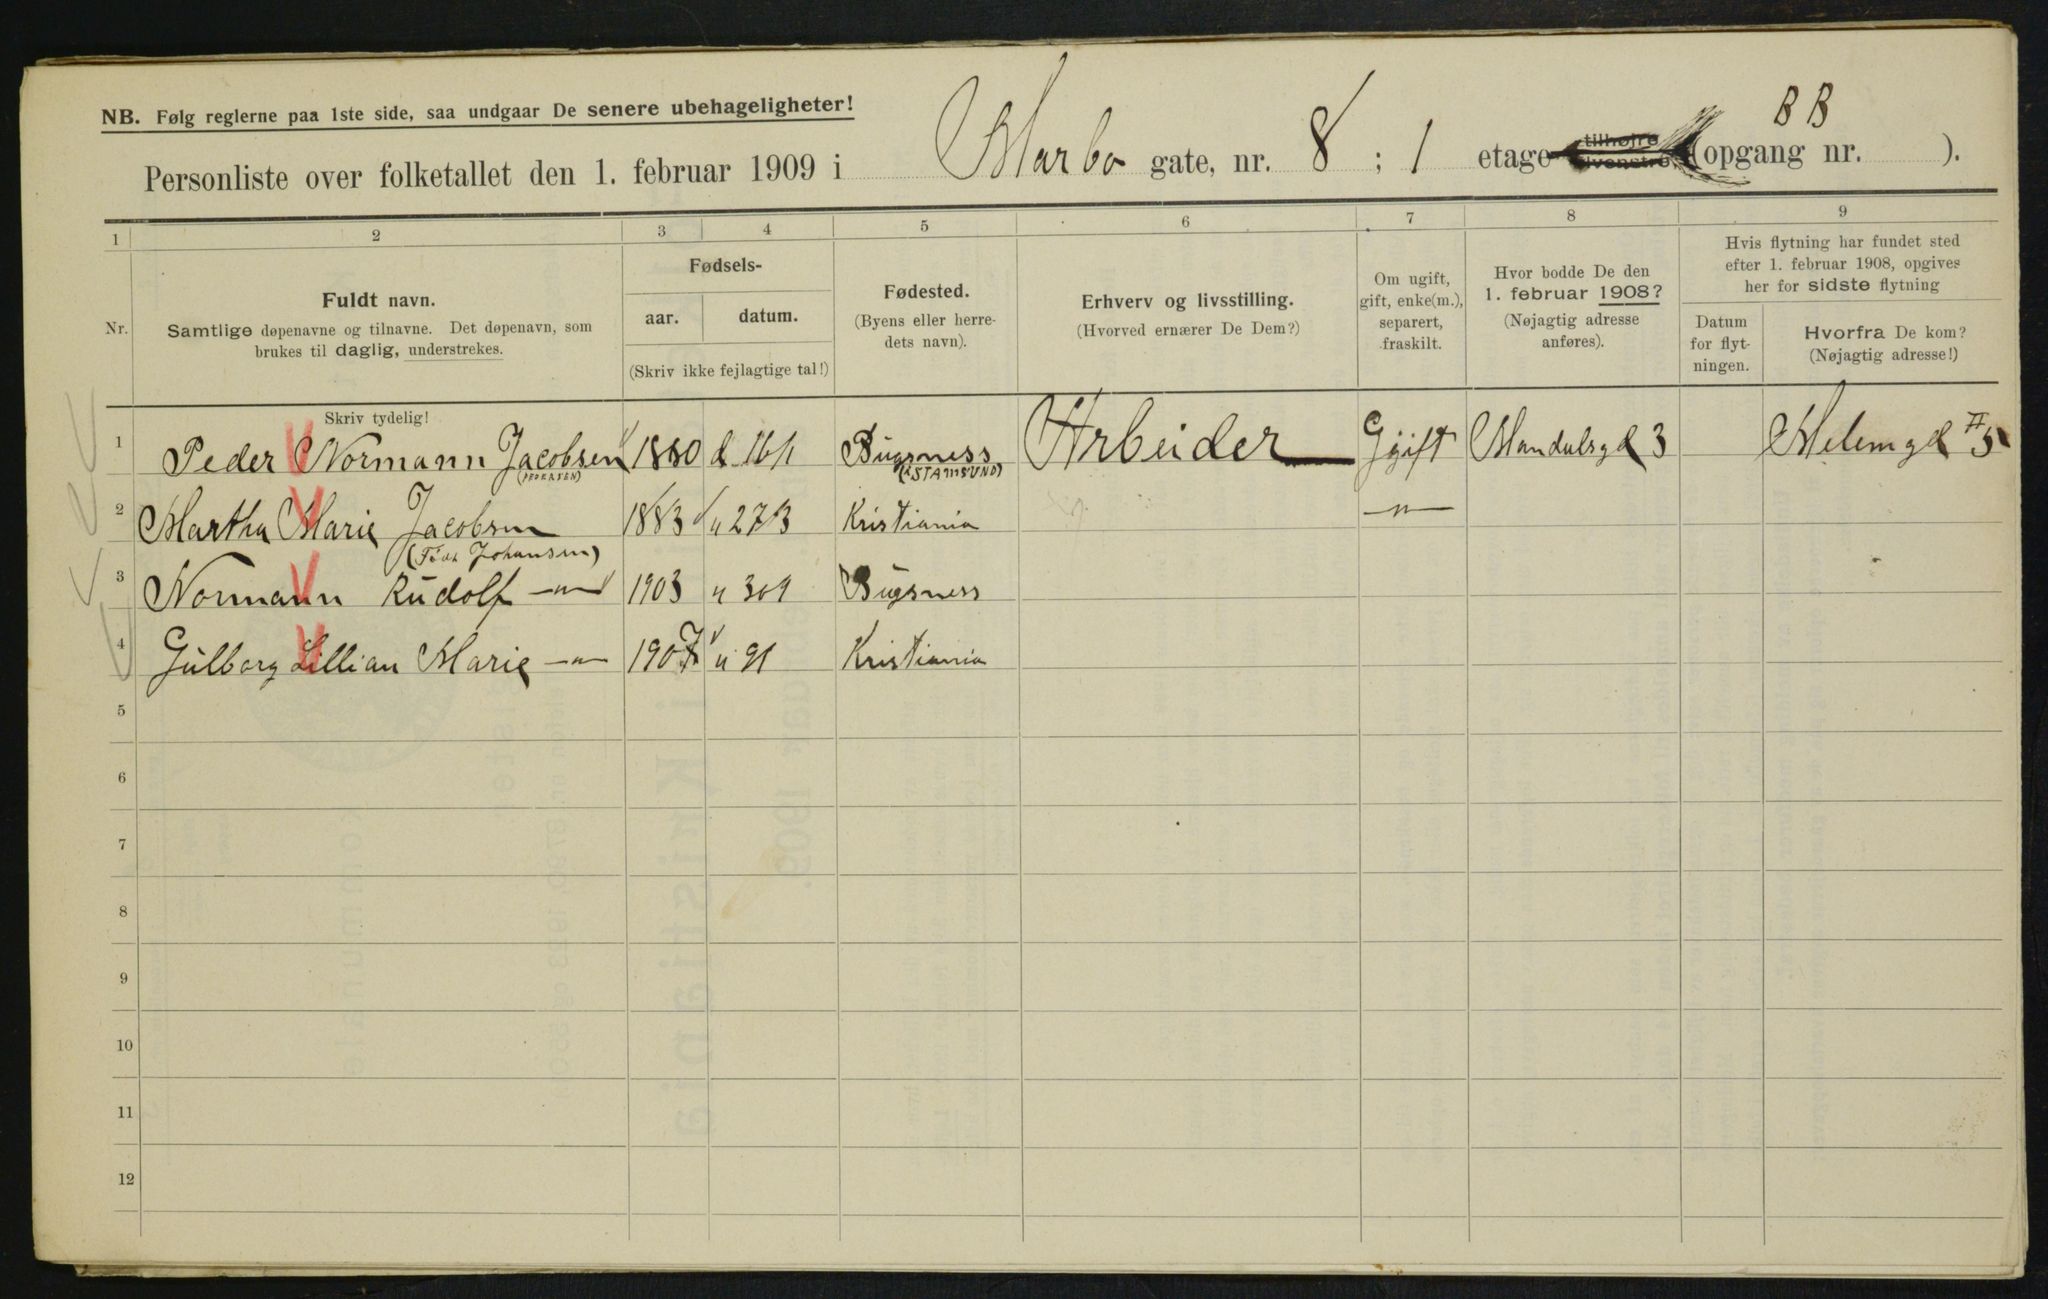 NB. Følg reglerne paa 1ste side, saa undgaar De senere ubehageligheter!
BB
Personliste over folketallet den 1. februar 1909 i Marbo gate, nr. 8 ; 1 etage tilhøjre tilvenstre (opgang nr. ).
1 2 3 4 5 6 7 8 9
Nr.
Fuldt navn.
Samtlige døpenavne og tilnavne. Det døpenavn, som
brukes til daglig, understrekes.
Fødsels-
aar. datum.
(Skriv ikke fejlagtige tal!)
Fødested.
(Byens eller herre-
dets navn).
Erhverv og livsstilling.
(Hvorved ernærer De Dem?)
Om ugift,
gift, enke(m.),
separert,
fraskilt.
Hvor bodde De den
1. februar 1908?
(Nøjagtig adresse
anføres).
Hvis flytning har fundet sted
efter 1. februar 1908, opgives
her for sidste flytning
Datum
for flyt-
ningen.
Hvorfra De kom?
(Nøjagtig adresse!)
Skriv tydelig!
1 Peder Normann Jacobsen 1880 d 16/1 Bugsness Arbeider Gift Mandalsgd 3
(PEDERSEN) (STAMSUND)
2 Martha Marie Jacobsen 1883 " 27/3 Kristiania —"—
(Født Johansen)
3 Normann Rudolf —"— 1903 " Bugsness
4 Gulborg Lillian Marie —"— 1907 " Kristiania
5
6
7
8
9
10
11
12